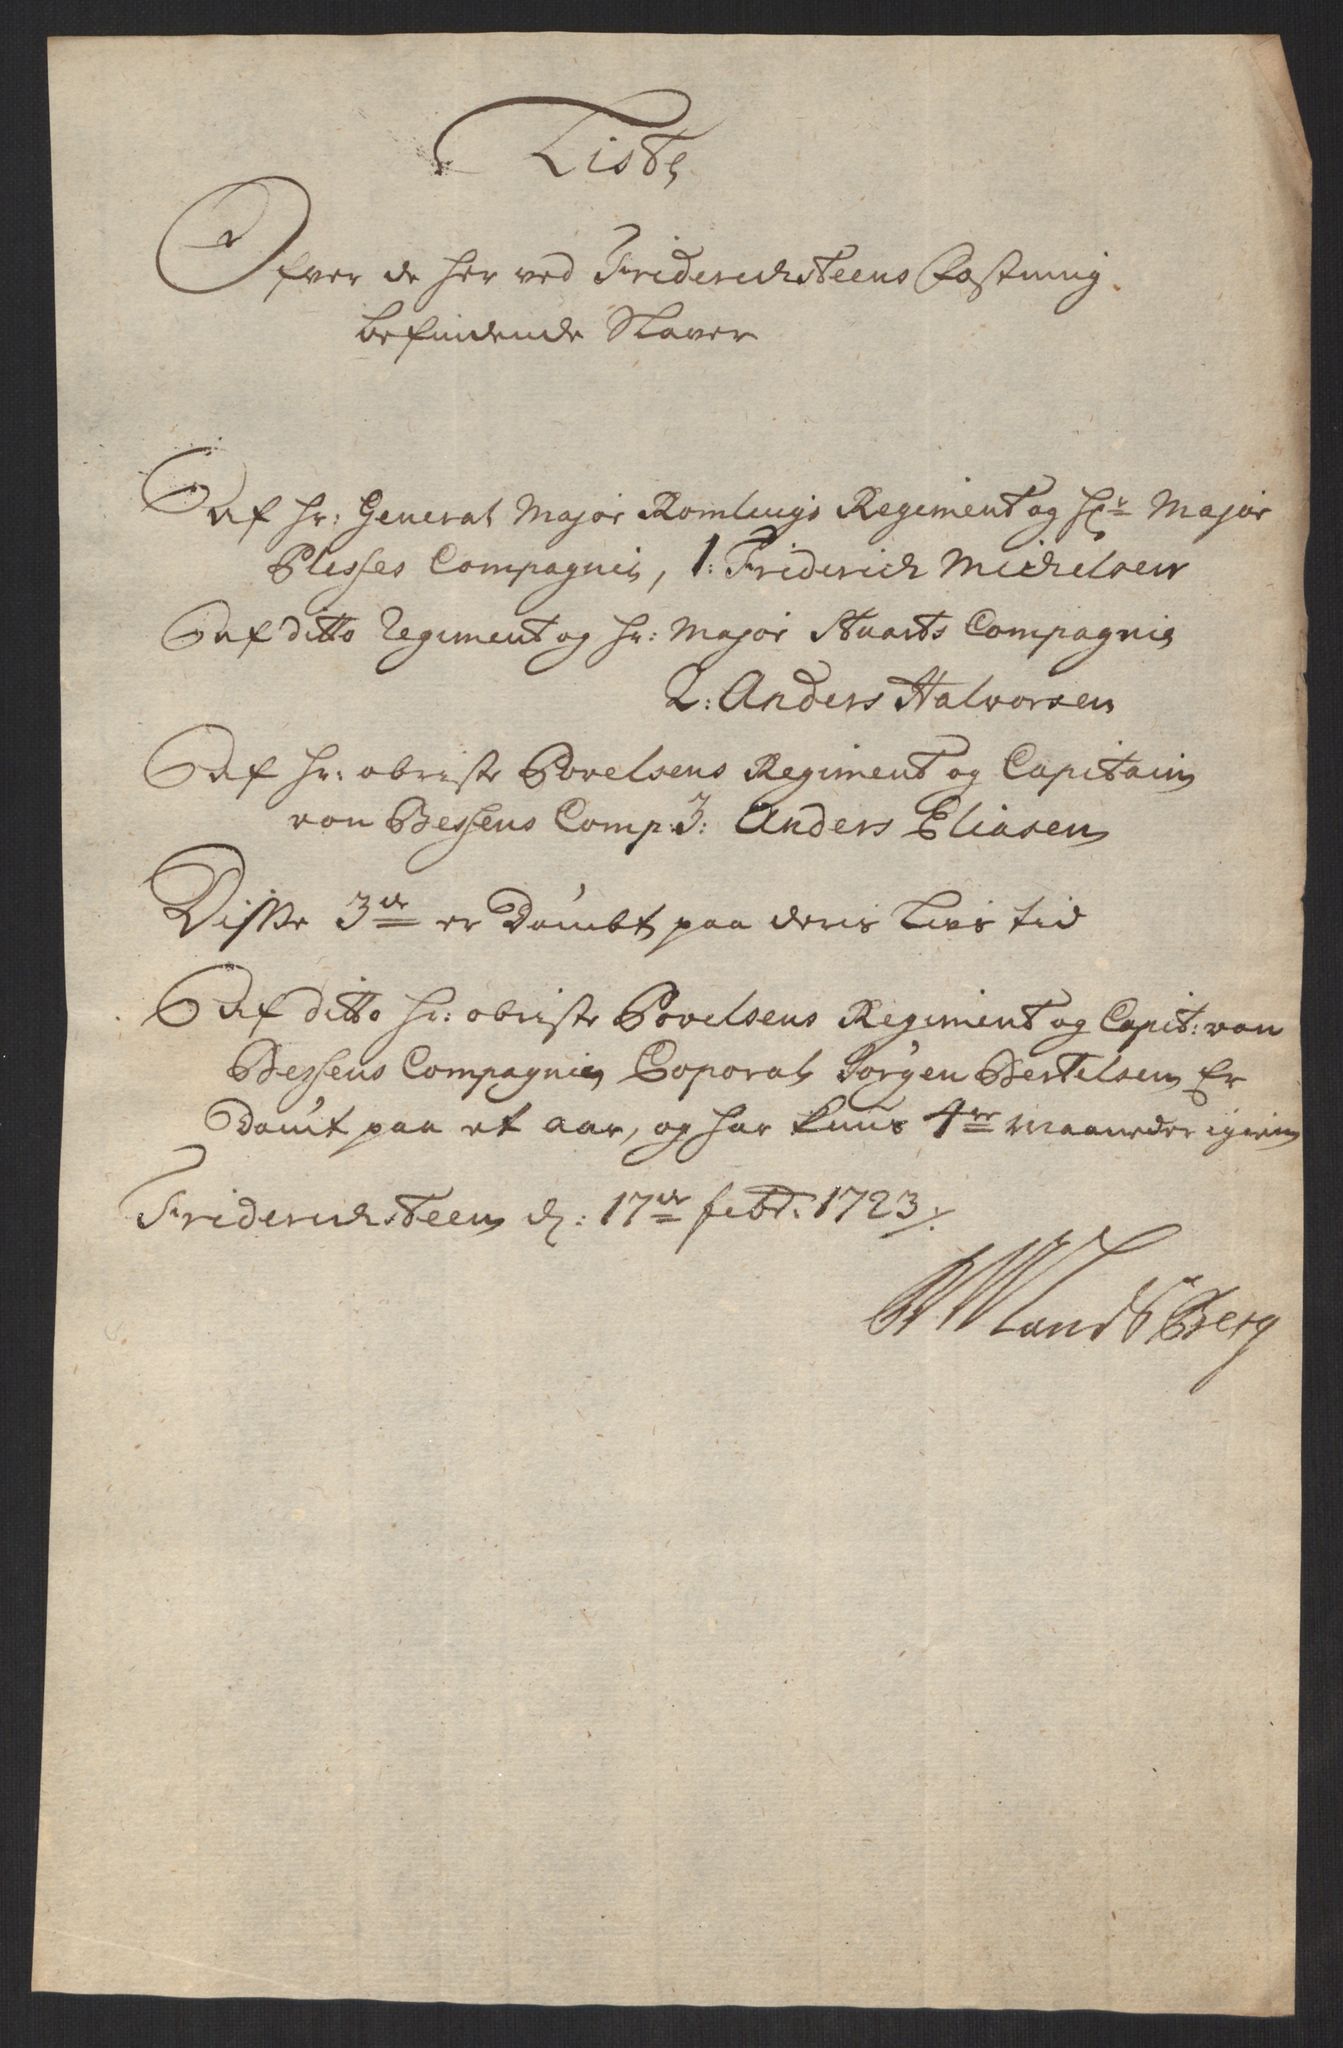 Liste
Ofver de her ved Friderichsteens Fæstning
befindende Slaver
Af hr: General Major Romlings Regiment og Hr Major
Plesses Compagnie, 1: Friderich Michelsen
Af ditto Regiment og hr: Major Stuarts Compagnie
2: Anders Halvorsen
Af hr: obriste Povelsens Regiment og Capitain
von Bessens Comp: 3: Anders Eliasen
Disse 3de er Dømbt paa deris Livs tid
Af ditto hr: obriste Povelsens Regiment og Capit: von
Bessens Compagnie Coporal Jørgen Bertelsen Er
Dømt paa et aar, og har kuns 4re Maaneder igien
Friderichsteen d: 17de febr: 1723/.
Landsberg